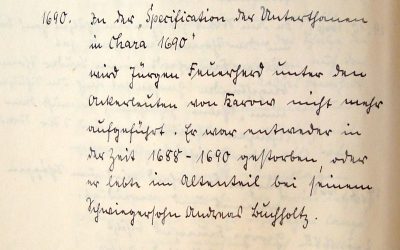 1690. In der „Specification der Unterthanen
in Chara 1690"
wird Jürgen Feuerherd unter den
Ackerleuten von Karow nicht mehr
aufgeführt. Er war entweder in
der Zeit 1688-1690 gestorben, oder
er lebte im Altenteil bei seinem
Schwiegersohn Andreas Buchholtz.